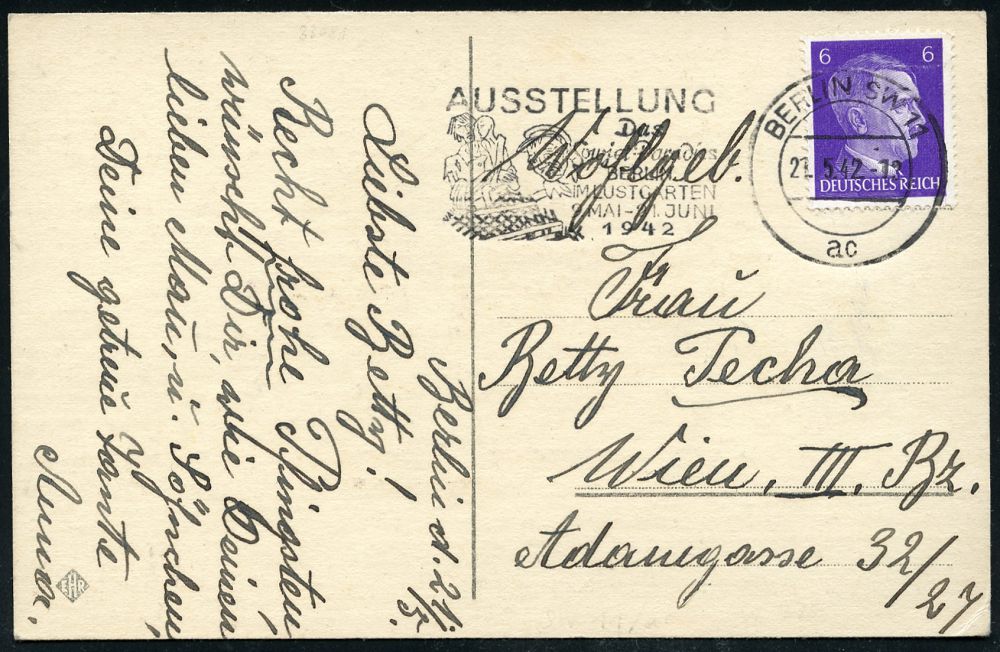 Berlin d. 21./5.
Liebste Betty!
Recht frohe Pfingsten,
wünscht Dir, wie Deinen
lieben Mann, u. Söhnchen,
Deine getreue Tante
EHR
AUSSTELLUNG
Das
Sowjet-Paradies
BERLIN
IM LUSTGARTEN
9.MAI-21.JUNI
1942
BERLIN SW 11
21.5.42.-12
ac
6 6
DEUTSCHES REICH
Wohlgeb.
Frau
Betty Techa
Wien, III. Bz.
Adamsgasse 32/27